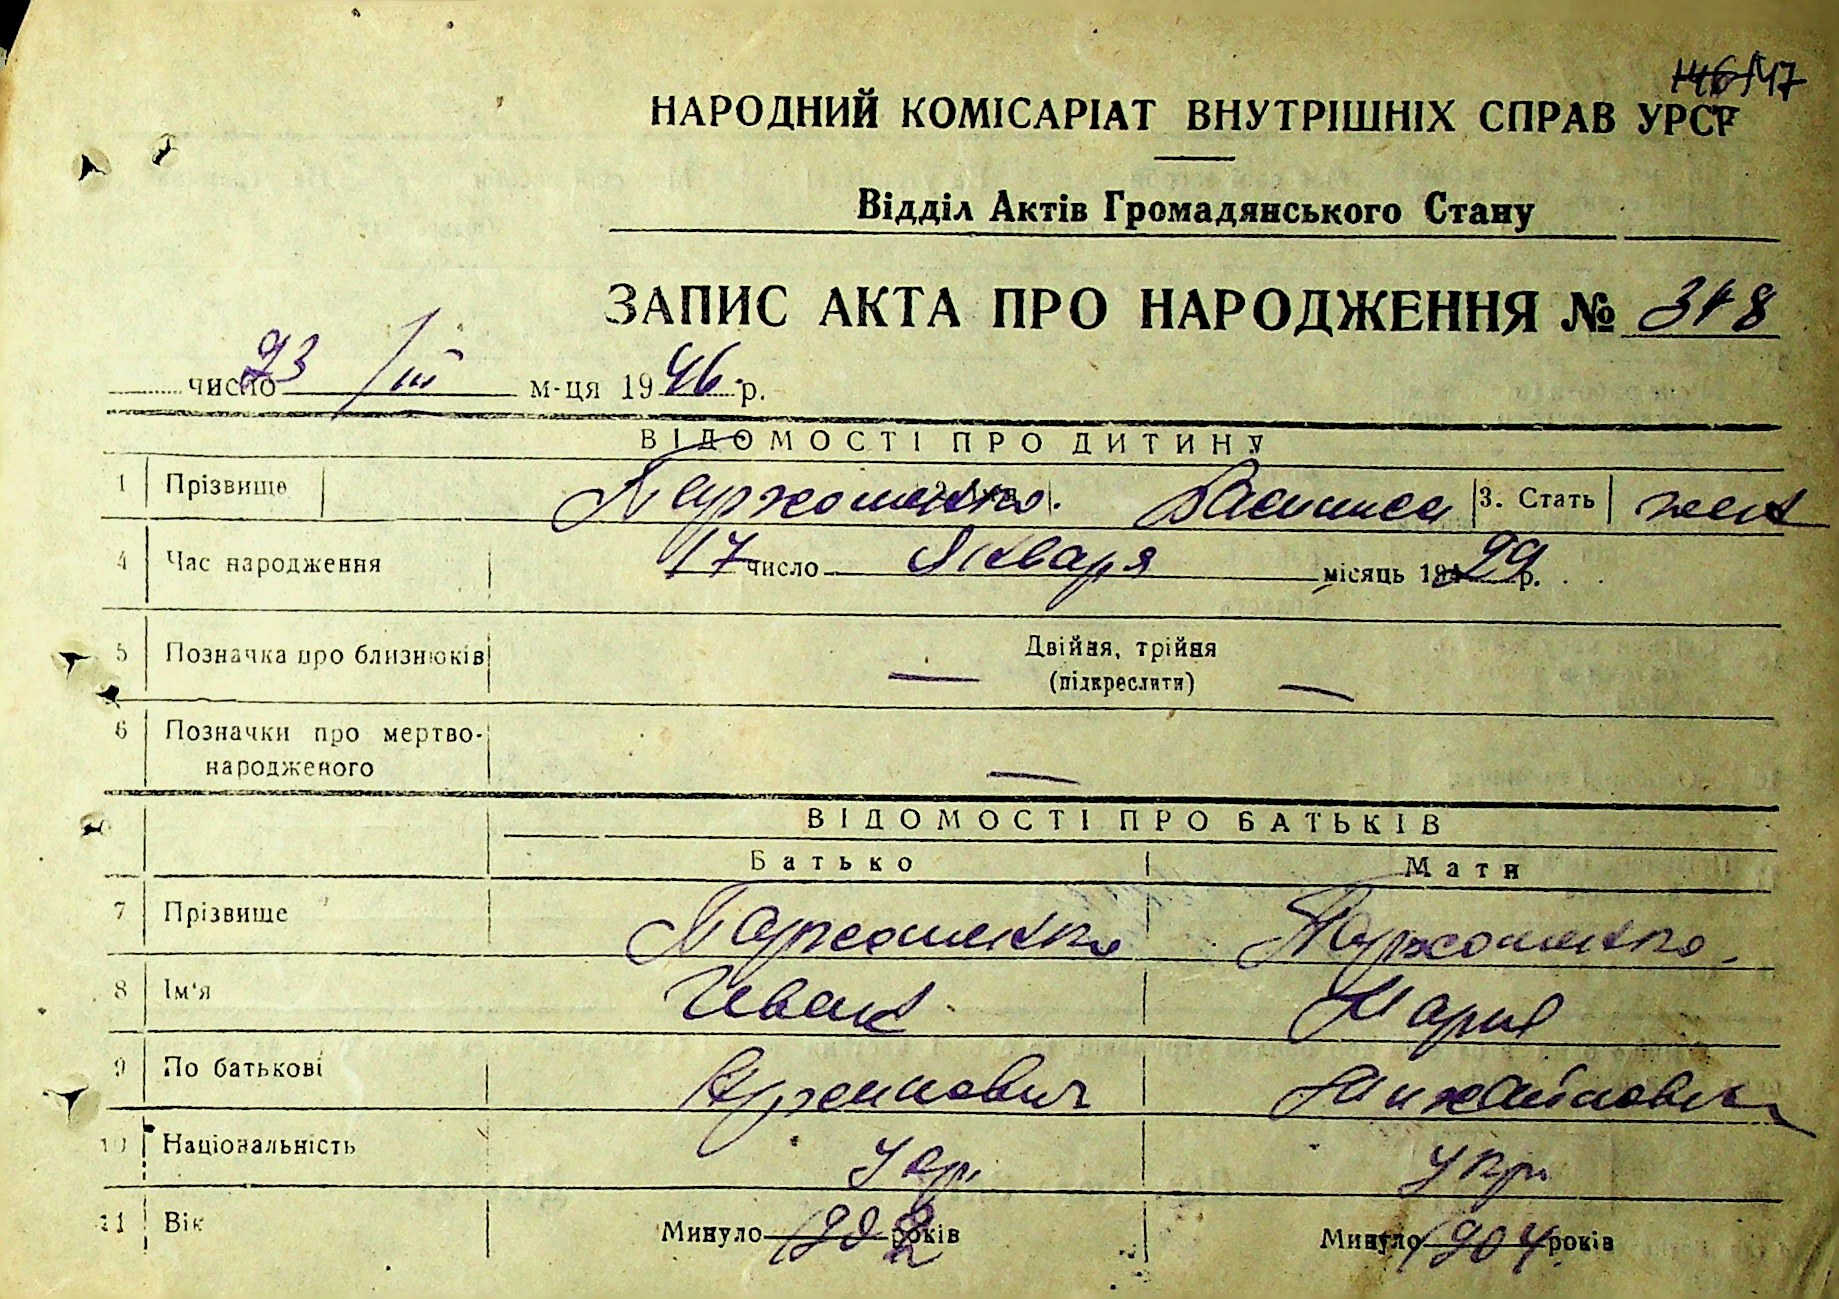 146/147
НАРОДНИЙ КОМІСАРІАТ ВНУТРІШНІХ СПРАВ УРСР
Відділ Актів Громадянського Стану
ЗАПИС АКТА ПРО НАРОДЖЕННЯ № 348
число 23 /III м-ця 1946 р.
ВІДОМОСТІ ПРО ДИТИНУ
1 Прізвище Пархоменко. 3. Стать жен
4 Час народження 17 число Января місяць 1929 р.
5 Позначка про близнюків — Двійня, трійня —
(підкреслити)
6 Позначки про мертво-
народженого —
ВІДОМОСТІ ПРО БАТЬКІВ
Батько Мати
7 Прізвище Пархоменко Пархоменко.
8 Ім'я Иван Мария
9 По батькові Михайловна
10 Національність Укр. Укр.
11 Вік Минуло 1902 років Минуло 1904 років